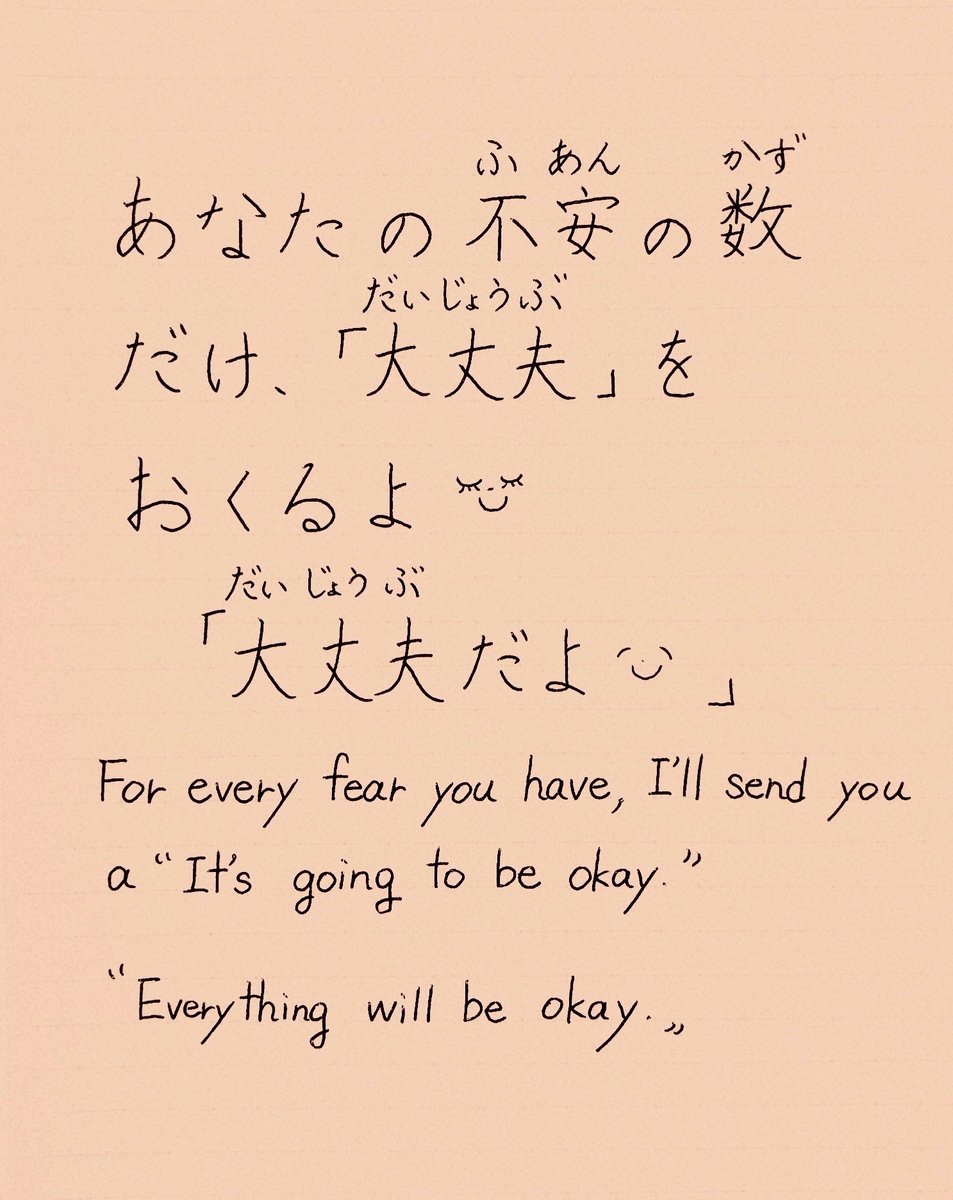 ふ あん かず
あなたの不安の数
だいじょうぶ
だけ、「大丈夫」を
おくるよ
だい じょう ぶ
「大丈夫だよ 」
For every fear you have, I'll send you
a “It's going to be okay.”
“Everything will be okay.„